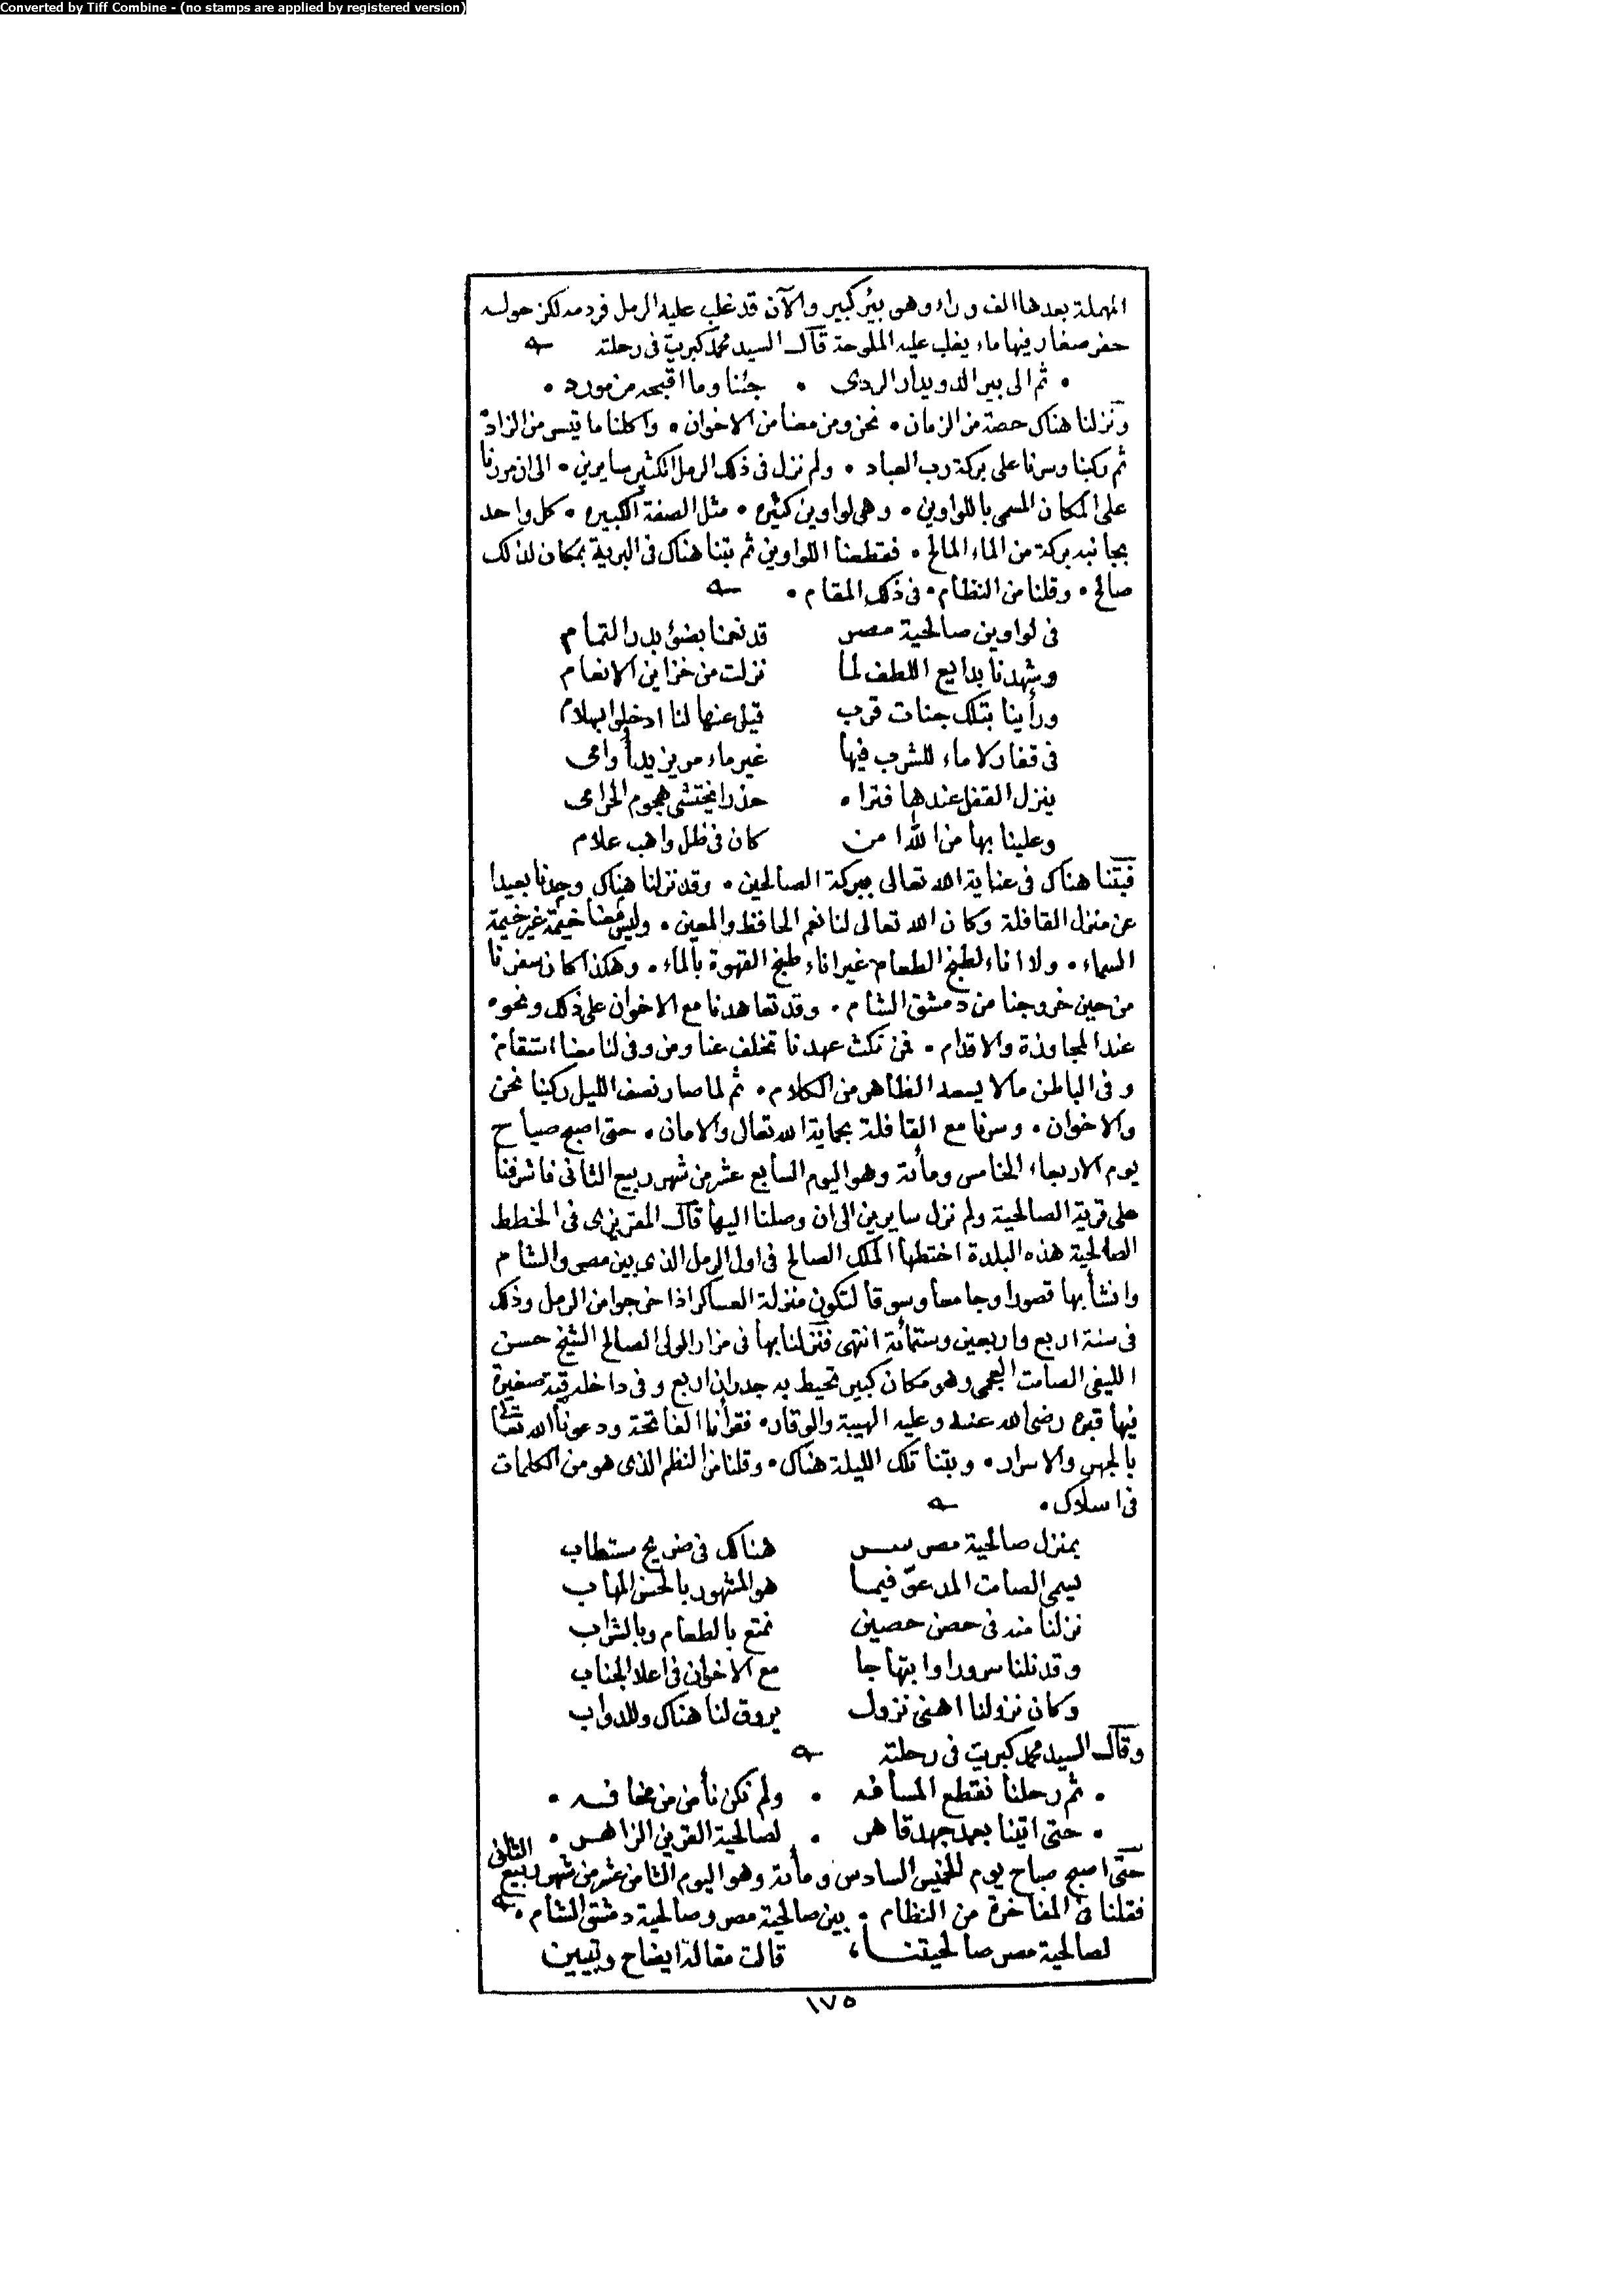 Converted by Tiff Combine - (no stamps are applied by registered version)
المهملة بعدها الف وراء وهو بئر كبير والآن قد غلب عليه الرمل فردمه لكن حوله
حفر صغار فيها ماء يغلب عليه الملوحة قال السيد محمد كبريت فى رحلته
• ثم الى بير الدويدار الردى • جئنا وما اقبحه من مورد •
ونزلنا هناك حصة من الزمان • نحن ومن معنا من الاخوان • واكلنا ما تيسر من الزاد
ثم ركبنا وسرنا على بركة رب العباد • ولم نزل فى ذلك الرمل الكثير سايرين • الى ان مررنا
على المكان المسمى باللواوين • وهى لواوين كثيره • مثل الصفة الكبيره • كل واحد
بجانبه بركة من الماء المالح • فقطعنا اللواوين ثم بتنا هناك فى البرية بمكان لذلك
صالح • وقلنا من النظام • فى ذلك المقام •
فى لواوين صالحية مصر قد نعمنا بضوء بدر التمام
وشهدنا بدايع اللطف لما نزلت من خزاين الانعام
ورأينا بتلك جنات قرب قيل عنها لنا ادخلوا بسلام
فى قفار لا ماء للشرب فيها غير ماء مر يزيد أوامى
ينزل القفل عندها فتراه حذرا يختشى هجوم الحرامى
وعلينا بها من الله امن كان فى ظل واهب علام
فبتنا هناك فى عناية الله تعالى ببركة الصالحين • وقد نزلنا هناك وحدنا بعيدا
عن منزل القافلة وكان الله تعالى لنا نعم الحافظ والمعين • وليس معنا خيمة غير خيمة
السماء • ولا اناء لطبخ الطعام غير اناء طبخ القهوة بالماء • وهكذا كان سفرنا
من حين خروجنا من دمشق الشام • وقد تعاهدنا مع الاخوان على ذلك ونحوه
عند المجاوزة والاقدام • فمن نكث عهدنا تخلف عنا ومن وفى لنا معنا استقام
وفى الباطن ما لا يسعه الظاهر من الكلام • ثم لما صار نصف الليل ركبنا نحن
والاخوان • وسرنا مع القافلة بحماية الله تعالى والامان • حتى اصبح صباح
يوم الاربعاء الخامس ومأئة وهو اليوم السابع عشر من شهر ربيع الثانى فاشرفنا
على قرية الصالحية ولم نزل سايرين الى ان وصلنا اليها قال المقريزى فى الخطط
الصالحية هذه البلدة اختطها الملك الصالح فى اول الرمل الذى بين مصر والشام
وانشأ بها قصورا وجامعا وسوقا لتكون منزلة العساكر اذا خرجوا من الرمل وذلك
فى سنة اربع واربعين وستمأئة انتهى فنزلنا بها فى مزار الولى الصالح الشيخ حسن
الليفى الصامت العجمى وهو مكان كبير تحيط به جدران اربع وفى داخله قبة صغيرة
فيها قبره رضى الله عنه وعليه الهيبة والوقار • فقرأنا الفاتحة ودعونا الله تعالى
بالجهر والاسرار • وبتنا تلك الليلة هناك • وقلنا من النظم الذى هو من الكلمات
فى اسلاك •
بمنزل صالحية مصر هناك فى ضريح مستطاب
يسمى الصامت المدعو فيما هو المشهور بالحسن المهاب
نزلنا منه فى حصن حصين نمتع بالطعام وبالشراب
وقد نلنا سرورا وابتهاجا مع الاخوان فى اعلا الجناب
وكان نزولنا اهنى نزول يروق لنا هناك وللدواب
وقال السيد محمد كبريت فى رحلته
• ثم رحلنا نقطع المسافه • ولم نكن نأمن من مخافه •
• حتى اتينا بعد جهد قاهر • لصالحية القرين الزاهر •
حتى اصبح صباح يوم الخميس السادس ومأئة وهو اليوم الثامن عشر من شهر ربيع الثانى
فقلنا فى المفاخرة من النظام • بين صالحية مصر وصالحية دمشق الشام •
لصالحية مصر صالحيتنا، قالت مقالة ايضاح وتبيين
١٧٥